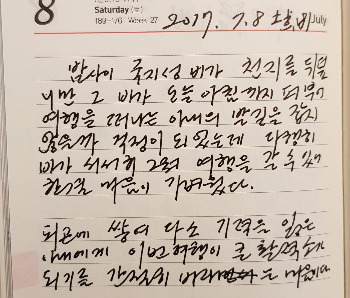 8
Saturday (토)
189-176 Week 27
2017. 7. 8 토요일
July
밤사이 국지성 비가 천지를 뒤덮
더만 그 비가 오늘 아침까지 퍼부어
여행을 떠나는 아내의 발길을 잡지
않을까 걱정이 되었는데 다행히
비가 서서히 그쳐 여행을 갈 수 있어
한결 마음이 가벼웠다.
피곤에 쌓여 다소 기력을 잃은
아내에게 이번 여행이 큰 활력소가
되기를 간절히 바라는 마음이다